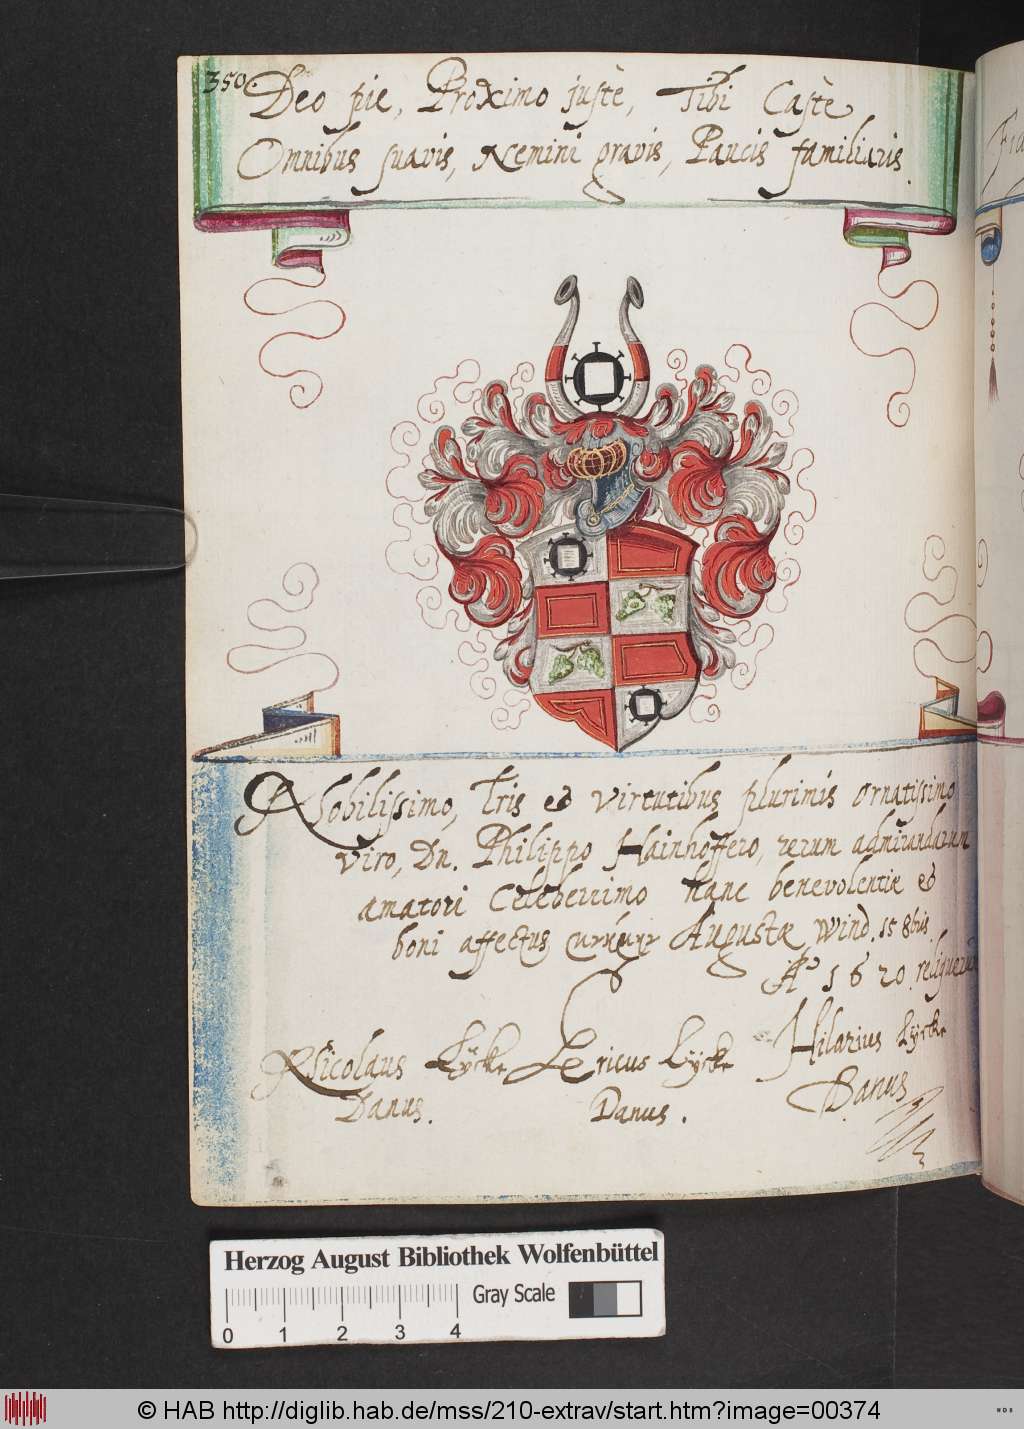 350.
Deo pie, Proximo justè, Tibi Castè
Omnibus suavis, Nemini gravis, Paucis familiaris.
Nobilissimo, Lris et virtutibus plurimis ornatissimo
viro, Dn. Philippo Hainhoffero, rerum admirandarum
amatori Celeberrimo hanc benevolentiæ et
boni affectus Augustæ Wind. 15 8bris.
Aº 1620. reliquerunt
Nicolaus Lÿcke Ericus Lÿcke Hilarius Lÿcke
Danus. Danus. Danus
Herzog August Bibliothek Wolfenbüttel
Gray Scale
0 1 2 3 4
© HAB http://diglib.hab.de/mss/210-extrav/start.htm?image=00374